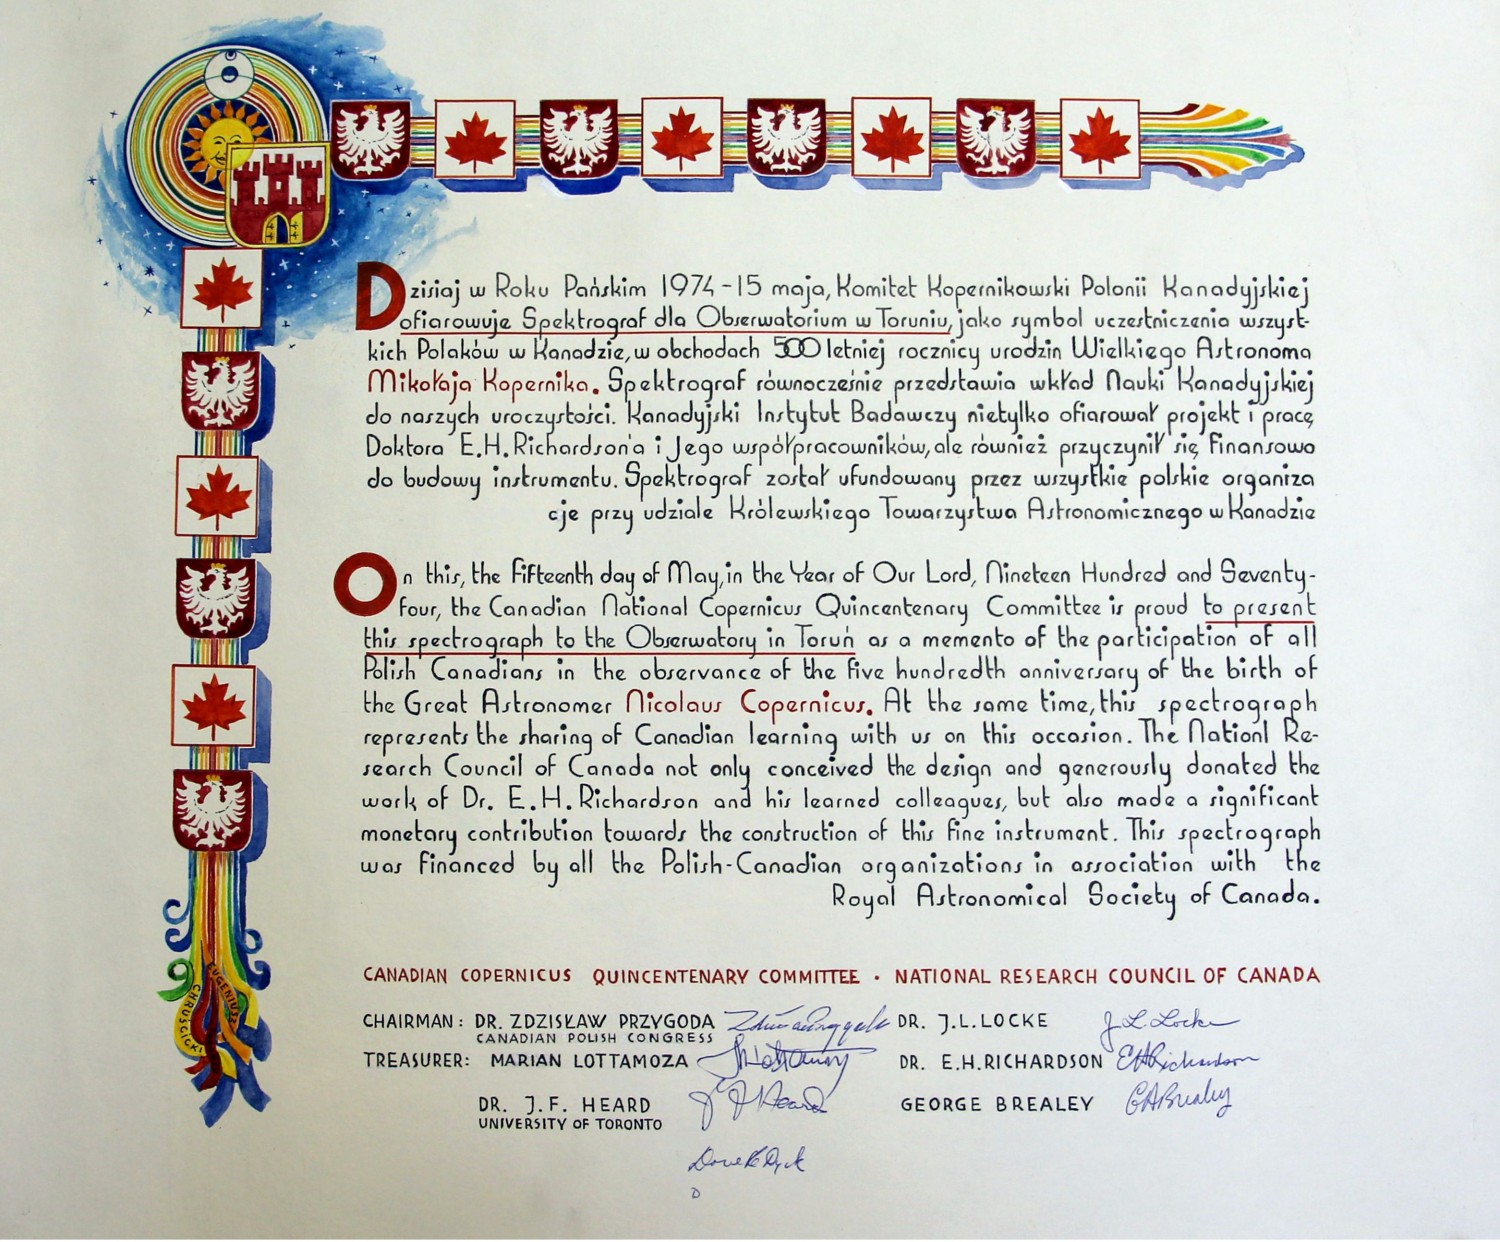 Dzisiaj w Roku Pańskim 1974-15 maja, Komitet Kopernikowski Polonii Kanadyjskiej
ofiarowuje Spektrograf dla Obserwatorium w Toruniu, jako symbol uczestniczenia wszyst-
kich Polaków w Kanadzie, w obchodach 500 letniej rocznicy urodzin Wielkiego Astronoma
Mikołaja Kopernika. Spektrograf równocześnie przedstawia wkład Nauki Kanadyjskiej
do naszych uroczystości. Kanadyjski Instytut Badawczy nietylko ofiarował projekt i pracę
Doktora E.H. Richardson'a i Jego współpracowników, ale również przyczynił się finansowo
do budowy instrumentu. Spektrograf został ufundowany przez wszystkie polskie organiza
cje przy udziale Królewskiego Towarzystwa Astronomicznego w Kanadzie
On this, the fifteenth day of May, in the Year of Our Lord, Nineteen Hundred and Seventy-
four, the Canadian National Copernicus Quincentenary Committee is proud to present
this spectrograph to the Observatory in Toruń as a memento of the participation of all
Polish Canadians in the observance of the five hundredth anniversary of the birth of
the Great Astronomer Nicolaus Copernicus. At the same time, this spectrograph
represents the sharing of Canadian learning with us on this occasion. The Nationl Re-
search Council of Canada not only conceived the design and generously donated the
work of Dr. E.H. Richardson and his learned colleagues, but also made a significant
monetary contribution towards the construction of this fine instrument. This spectrograph
was financed by all the Polish-Canadian organizations in association with the
Royal Astronomical Society of Canada.
CANADIAN COPERNICUS QUINCENTENARY COMMITTEE · NATIONAL RESEARCH COUNCIL OF CANADA
CHAIRMAN: DR. ZDZISŁAW PRZYGODA DR. J.L. LOCKE J. L. Locke
CANADIAN POLISH CONGRESS
TREASURER: MARIAN LOTTAMOZA DR. E.H. RICHARDSON EH Richardson
DR. J.F. HEARD J F Heard GEORGE BREALEY GABrealey
UNIVERSITY OF TORONTO
EUGENIUSZ
CHRUŚCICKI